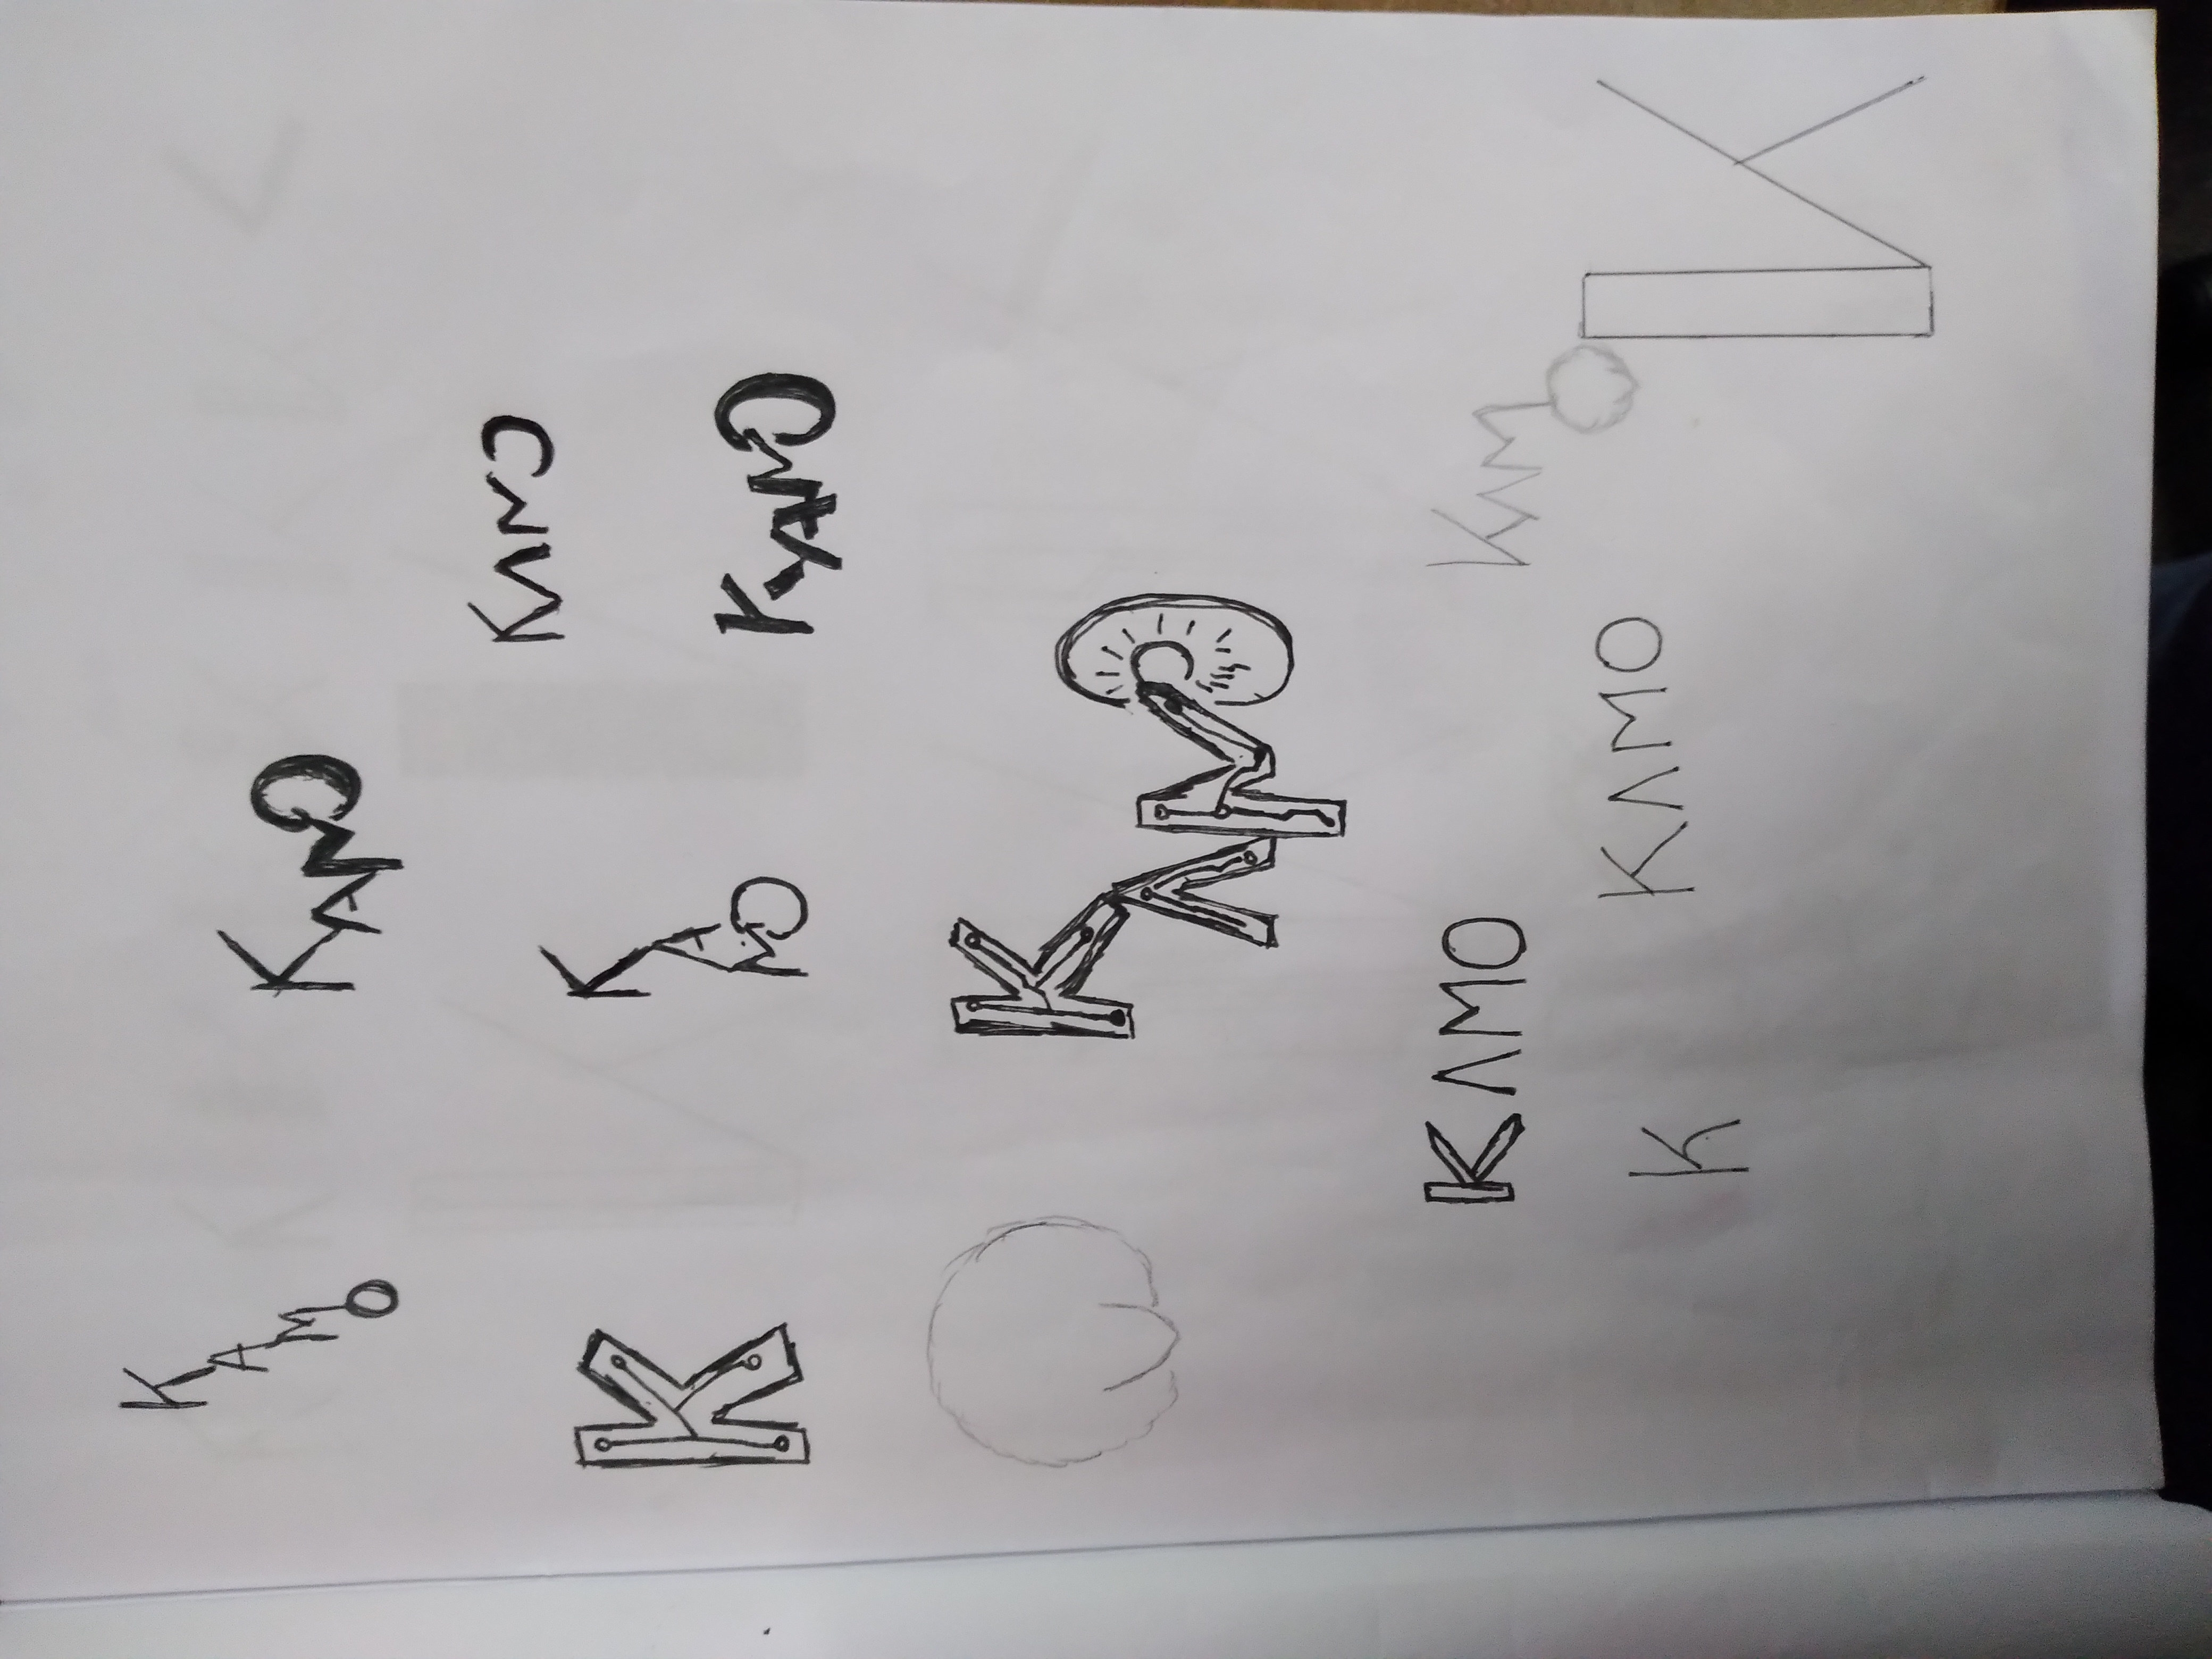 KAMO
KAMO
KAMO
K
KAMO
KAMO
KAMO
KAMO
KAM
K
KAMO
K